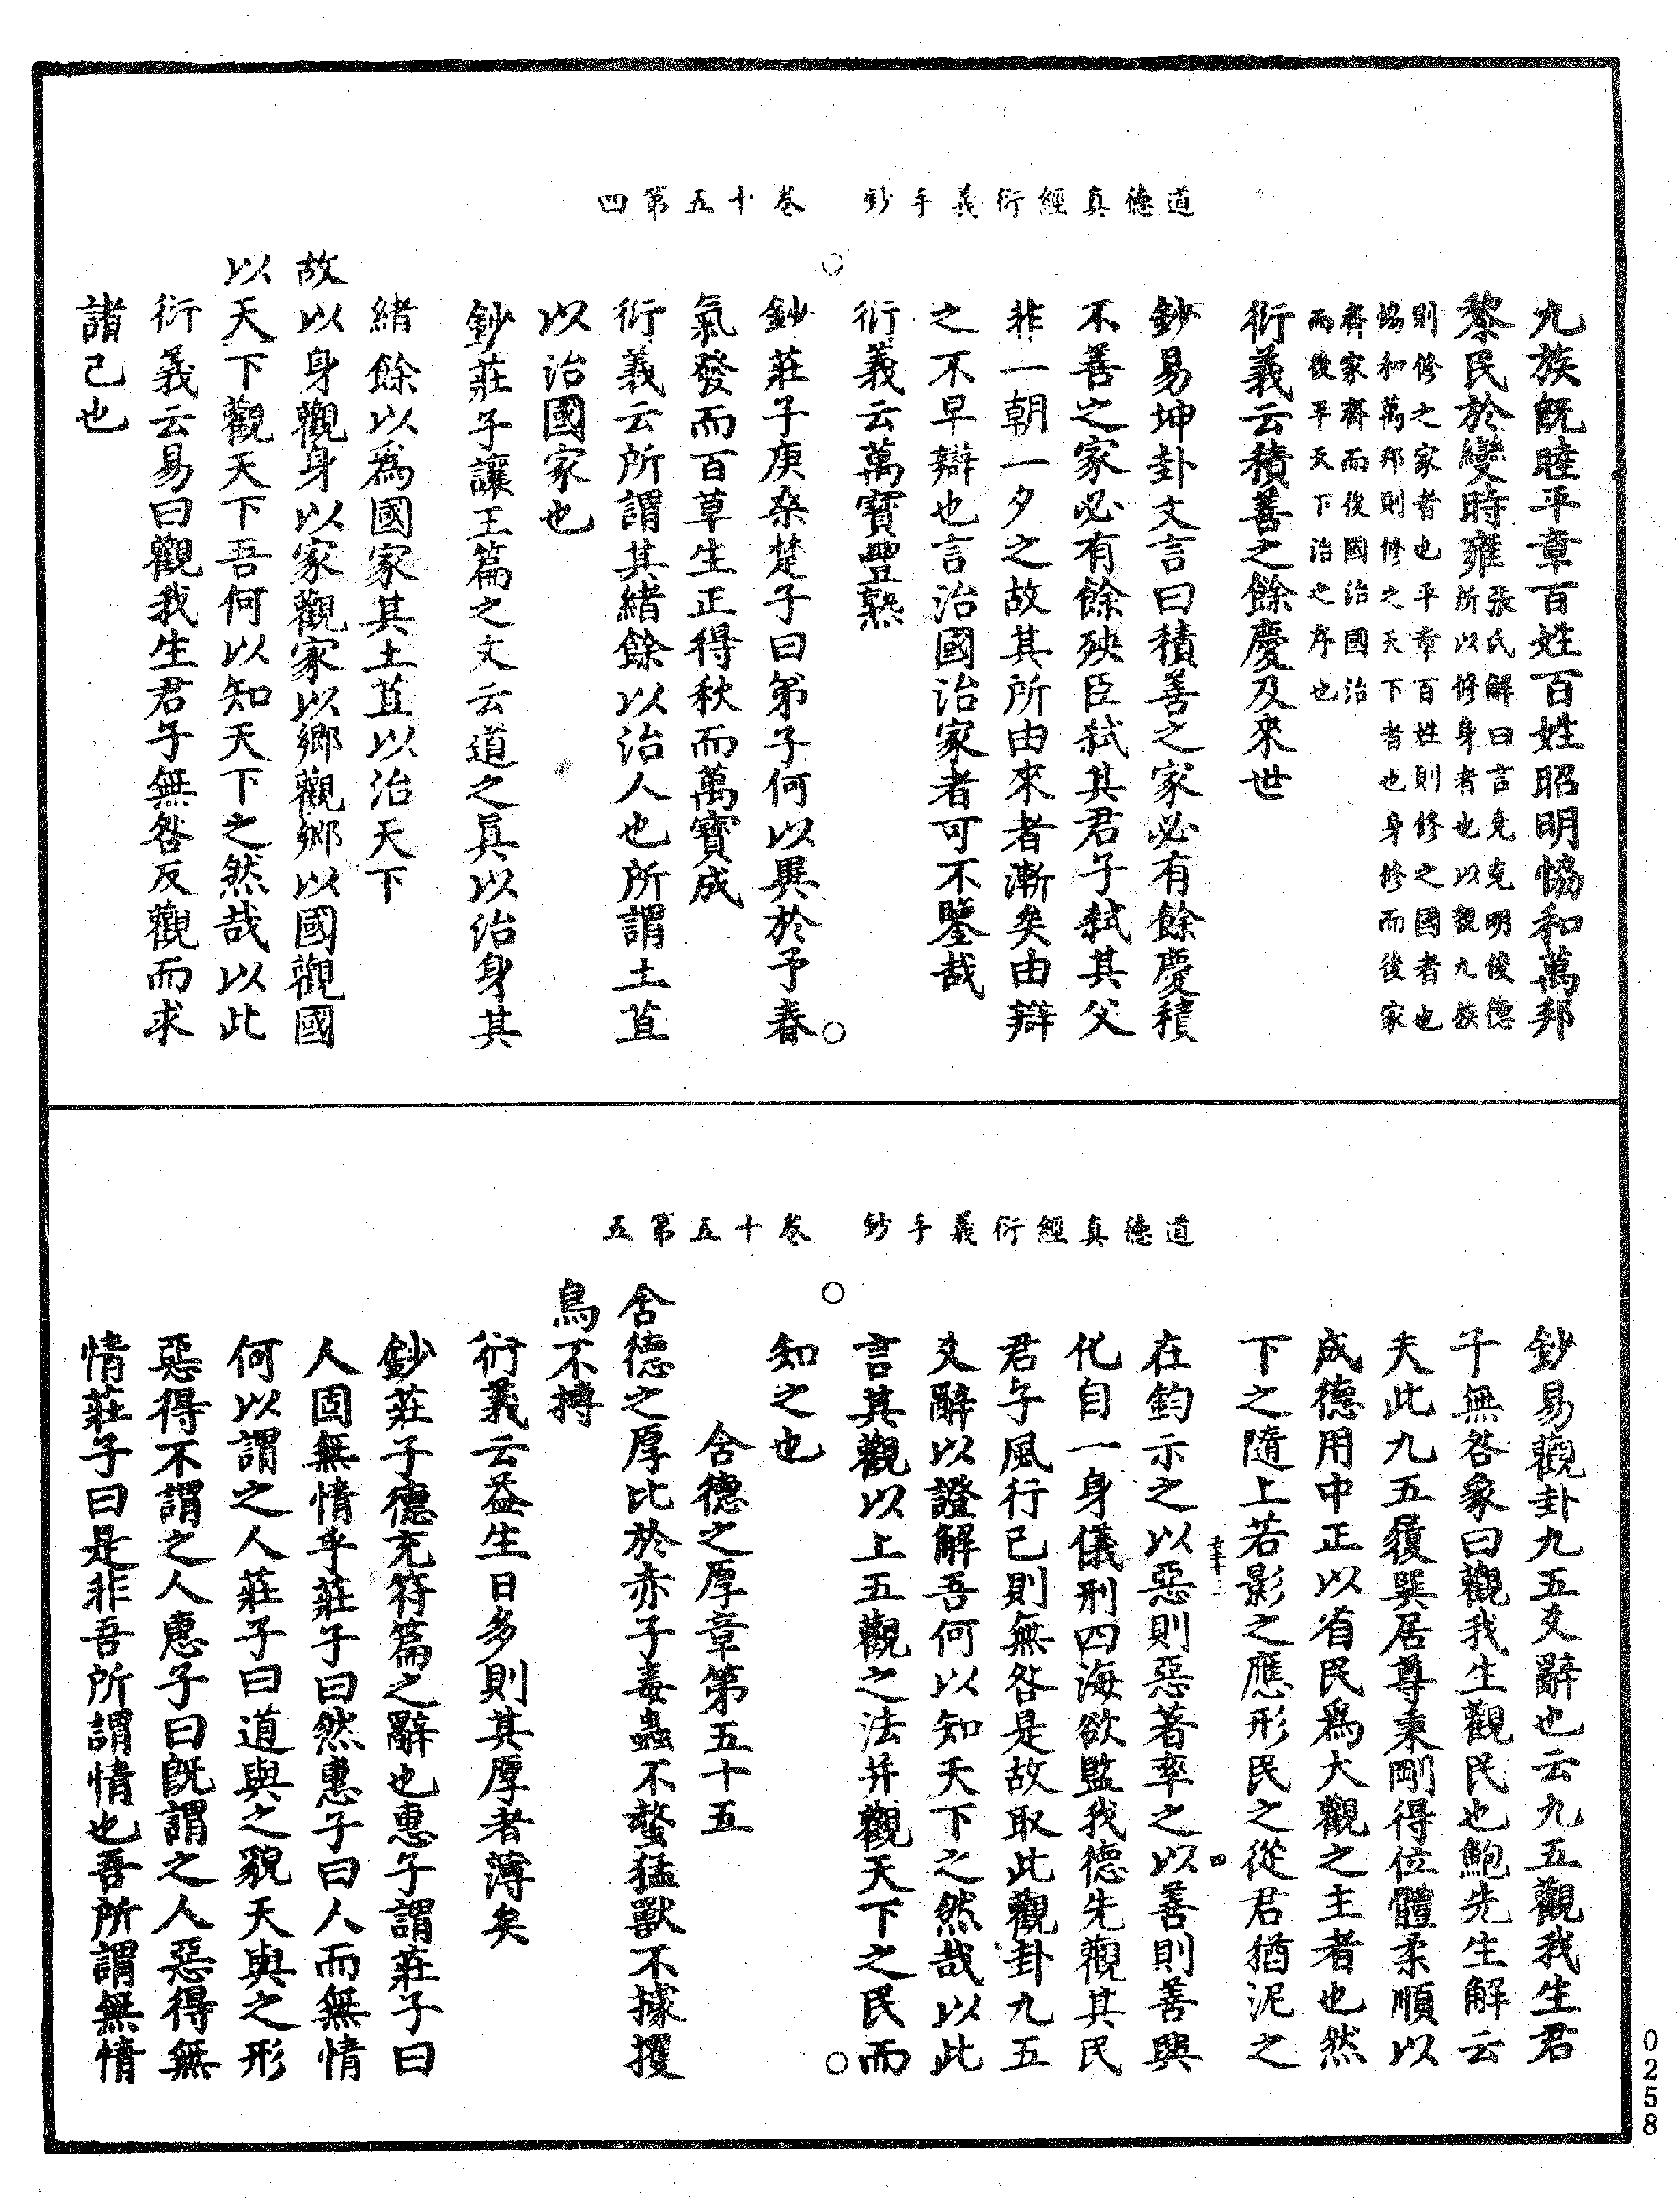 道德真經衍義手鈔　卷十五第四
九族既睦平章百姓百姓昭明恊和萬邦
黎民於變時雍張氏解曰言克克明俊德所以修身者也以觀九族
則修之家者也平章百姓則修之國者也
恊和萬邦則修之天下者也身修而後家
齊家齊而後國治國治
而後平天下治之序也
衍義云積善之餘慶及來世
鈔易坤卦文言曰積善之家必有餘慶積
不善之家必有餘殃臣弑其君子弑其父
非一朝一夕之故其所由來者漸矣由辯
之不早辯也言治國治家者可不鑒哉
衍義云萬寶豐熟
鈔莊子庚桑楚子曰弟子何以異於予春
氣發而百草生正得秋而萬寶成
衍義云所謂其緒餘以治人也所謂土苴
以治國家也
鈔莊子讓王篇之文云道之真以治身其
緒餘以爲國家其土苴以治天下
故以身觀身以家觀家以鄉觀鄉以國觀國
以天下觀天下吾何以知天下之然哉以此
衍義云易曰觀我生君子無咎反觀而求
諸己也
道德真經衍義手鈔　卷十五第五
鈔易觀卦九五爻辭也云九五觀我生君
子無咎象曰觀我生觀民也鮑先生解云
夫此九五履巽居尊秉剛得位體柔順以
成德用中正以省民爲大觀之主者也然
下之隨上若影之應形民之從君猶泥之
在鈞示之以惡則惡著率之以善則善興
化自一身儀刑四海欲監我德先觀其民
君子風行己則無咎是故取此觀卦九五
爻辭以證解吾何以知天下之然哉以此
言其觀以上五觀之法并觀天下之民而
知之也
含德之厚章第五十五
含德之厚比於赤子毒蟲不螫猛獸不據攫
鳥不搏
衍義云益生日多則其厚者薄矣
鈔莊子德充符篇之辭也惠子謂莊子曰
人固無情乎莊子曰然惠子曰人而無情
何以謂之人莊子曰道與之貌天與之形
惡得不謂之人惠子曰既謂之人惡得無
情莊子曰是非吾所謂情也吾所謂無情
0258